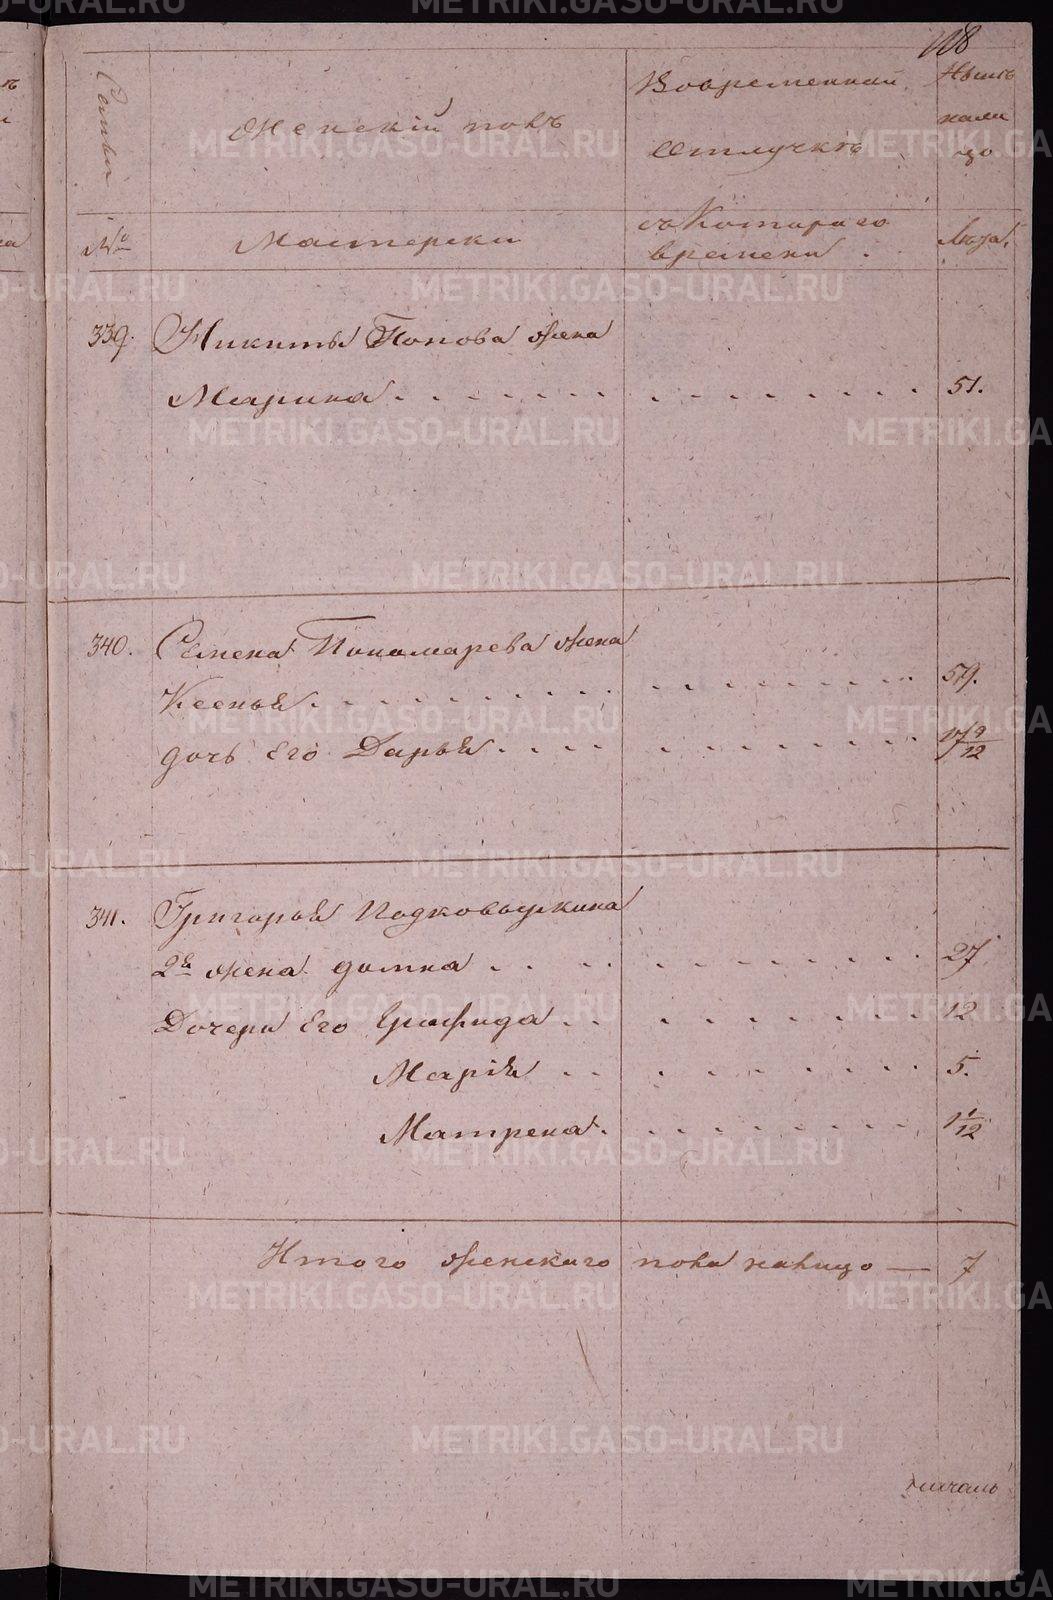 108
Семьи
Женскій полъ
Во временной
Отлучкѣ
Нынѣ
нали
цо
№
Мастерски
съ Котораго
времени
Лѣта.
339. Никиты Попова жена
Марина 51.
340. Семена Пономарева жена
Ксенья 59.
дочь Его Дарья 17 9/12
341. Григорья Подковыркина
2я жена домна 27
Дочери Его Ерафида 12
Марія 5.
Матрена. 1 1/12
Итого женскаго пола налицо — 7
METRIKI.GASO-URAL.RU